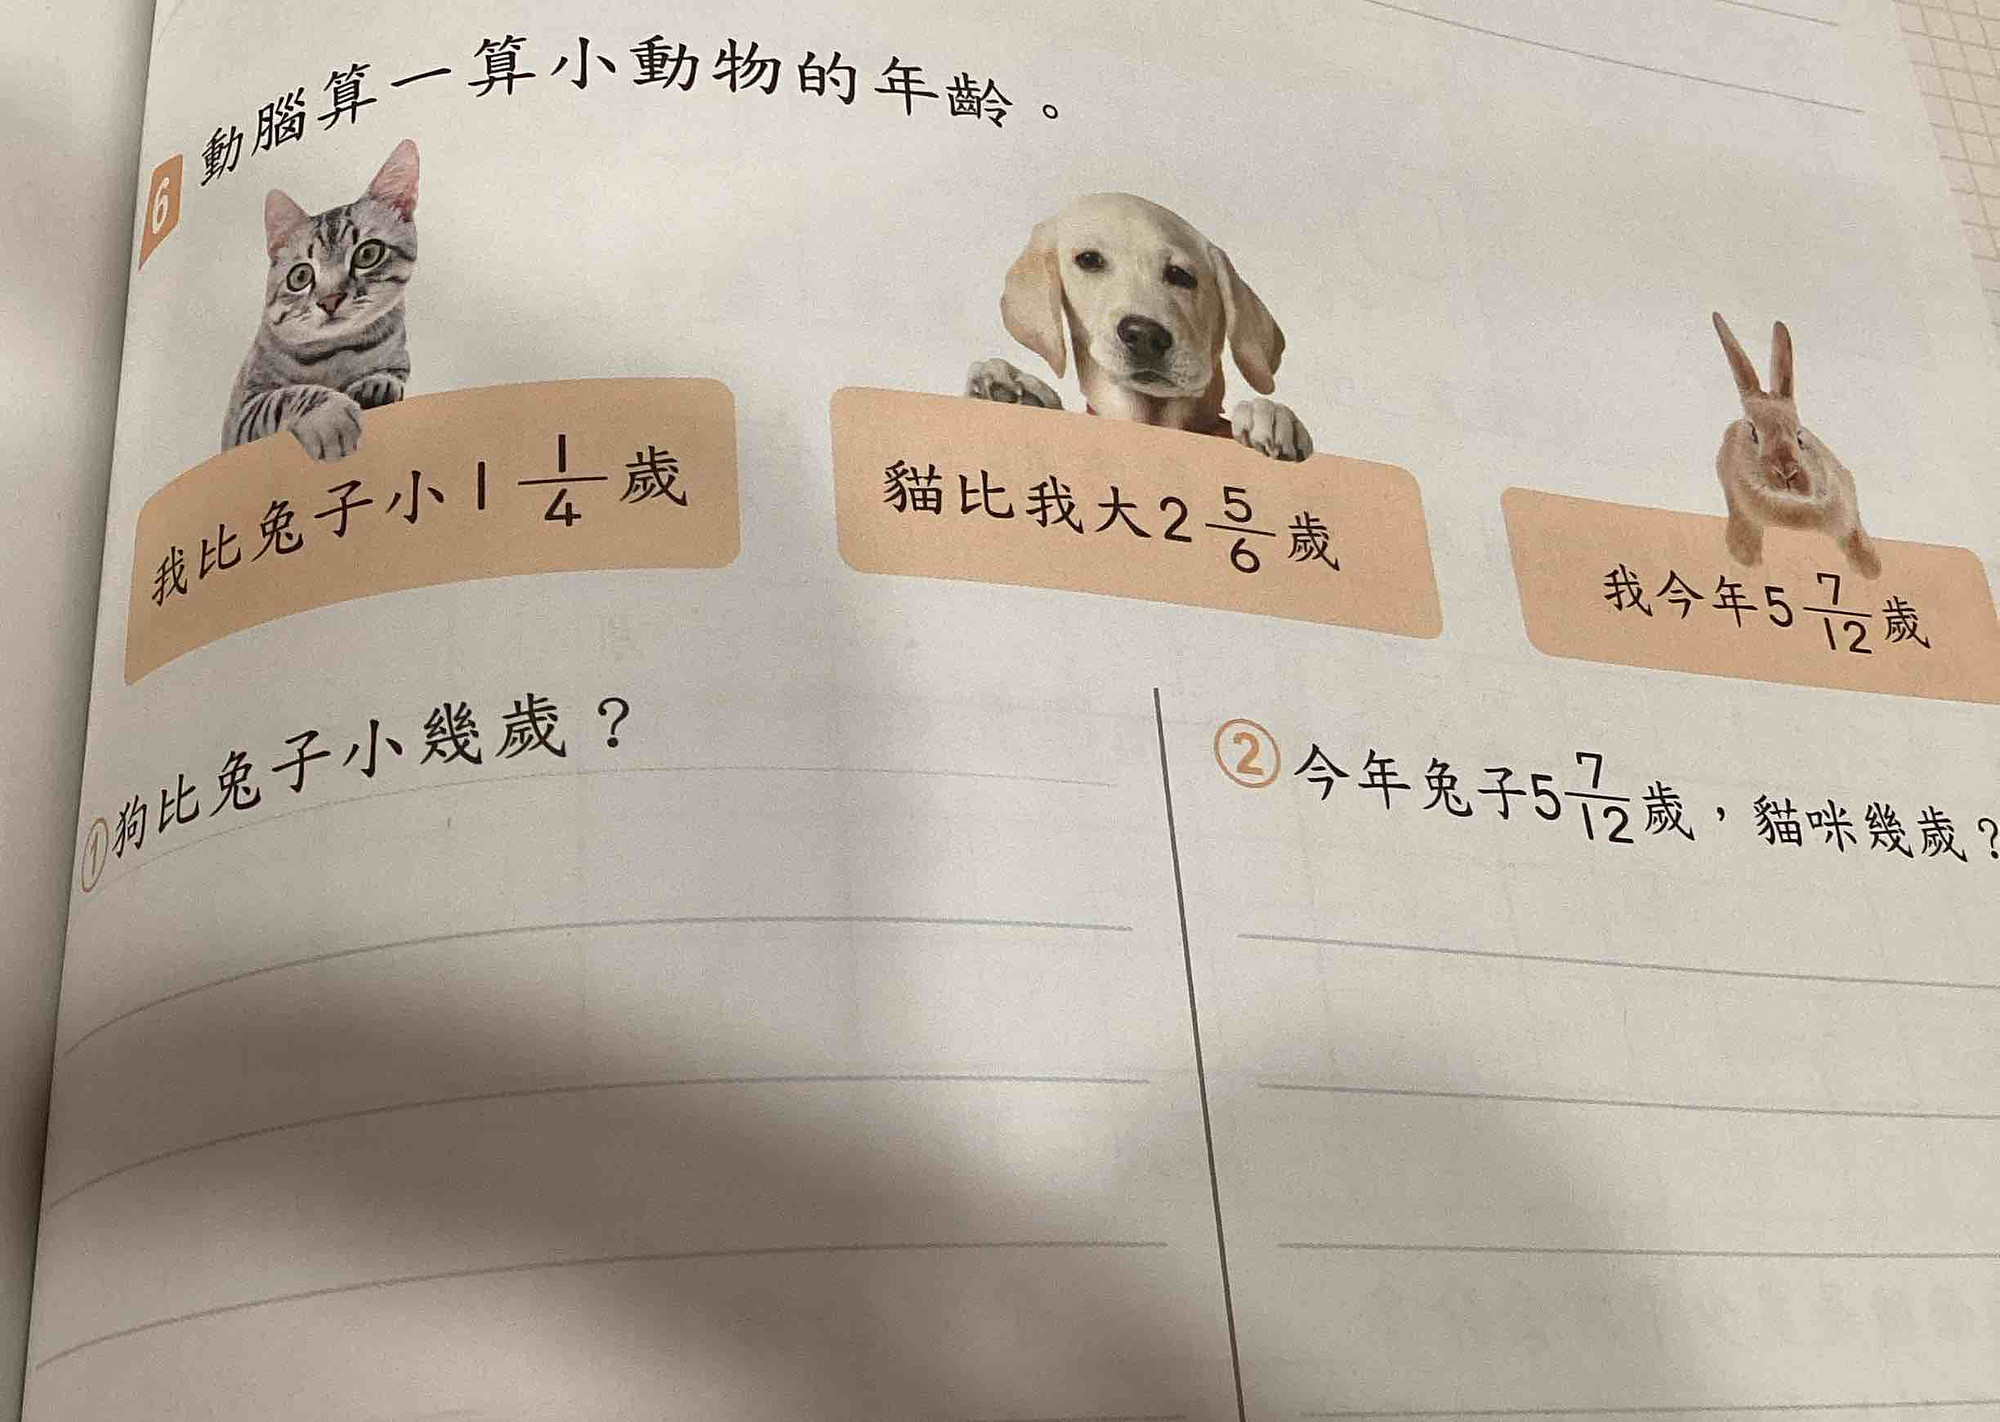 6 動腦算一算小動物的年齡。
我比兔子小1 1/4 歲
貓比我大2 5/6 歲
我今年5 7/12 歲
①狗比兔子小幾歲？
②今年兔子5 7/12 歲，貓咪幾歲？